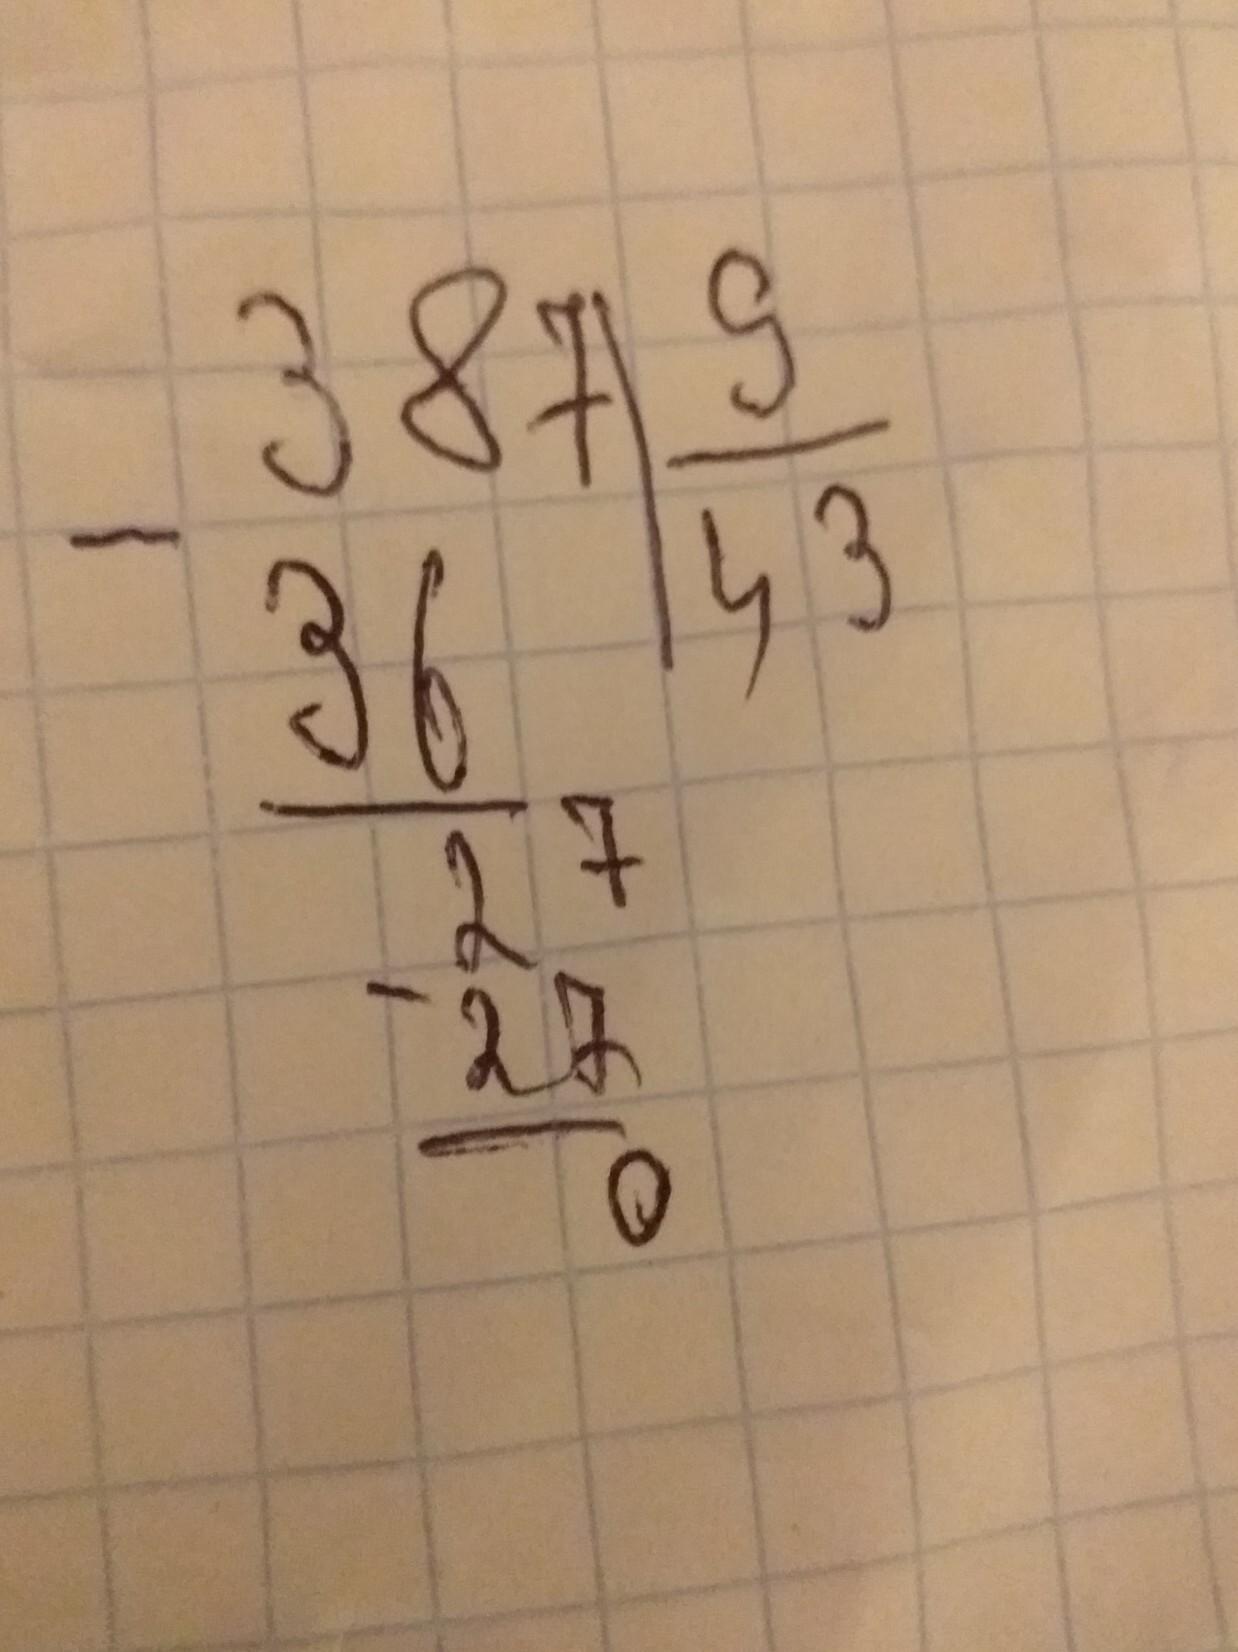 387 9
- 43
36
27
- 27
0